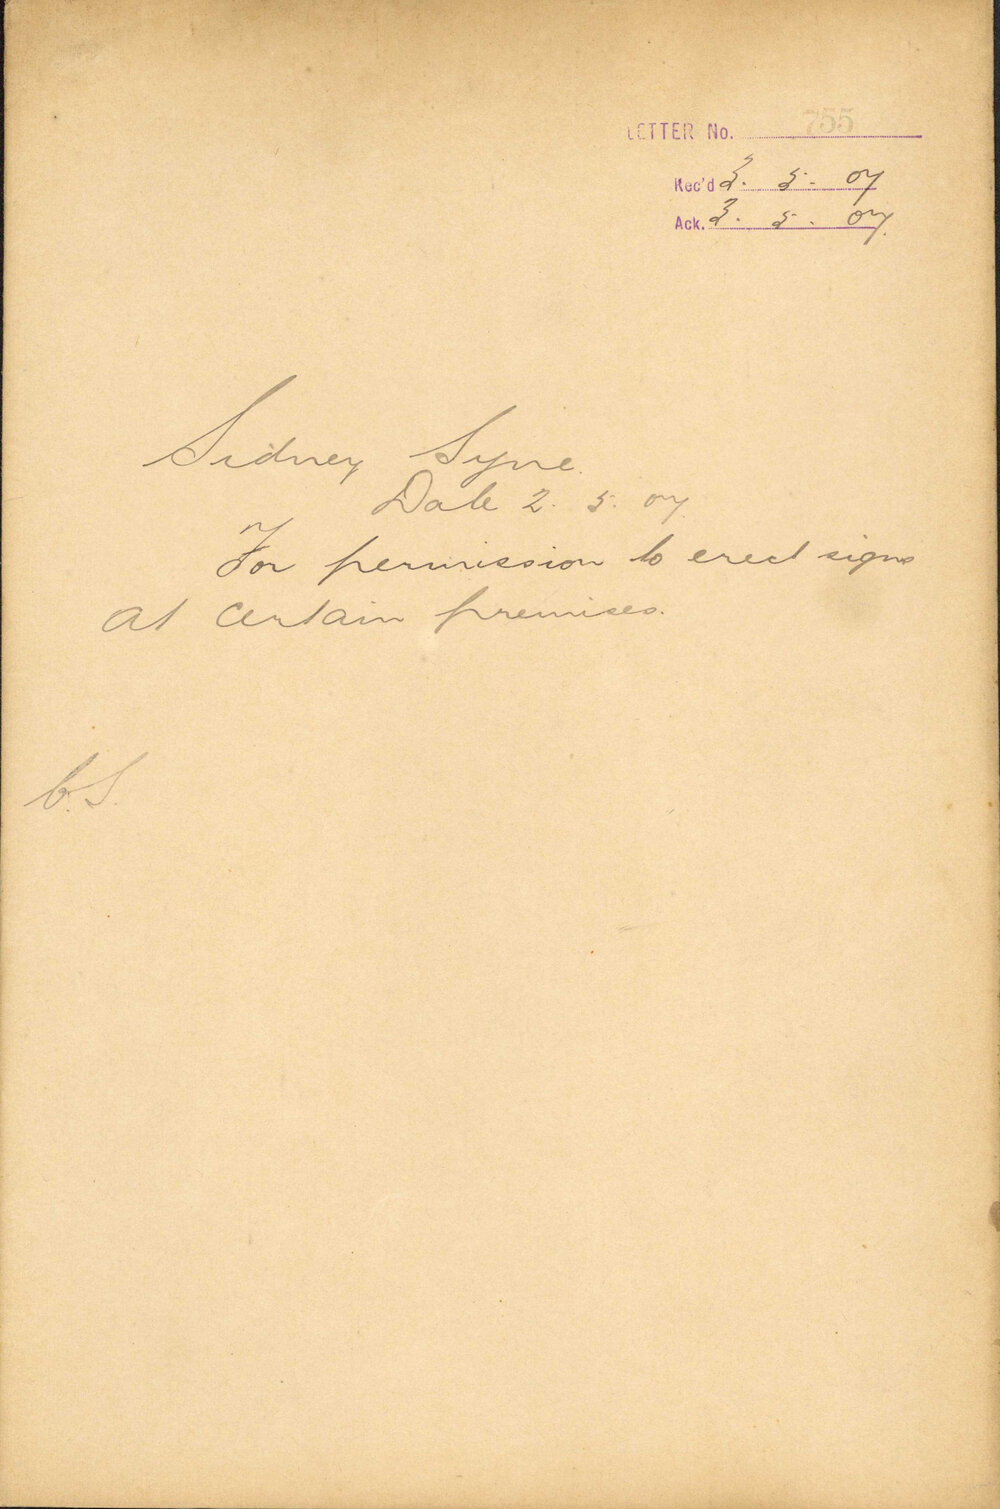 LETTER No. 755
Rec'd 3. 5. 07
Ack. 3. 5. 07.
Sidney Syne.
Date 2. 5. 07.
For permission to erect signs
at certain premises.